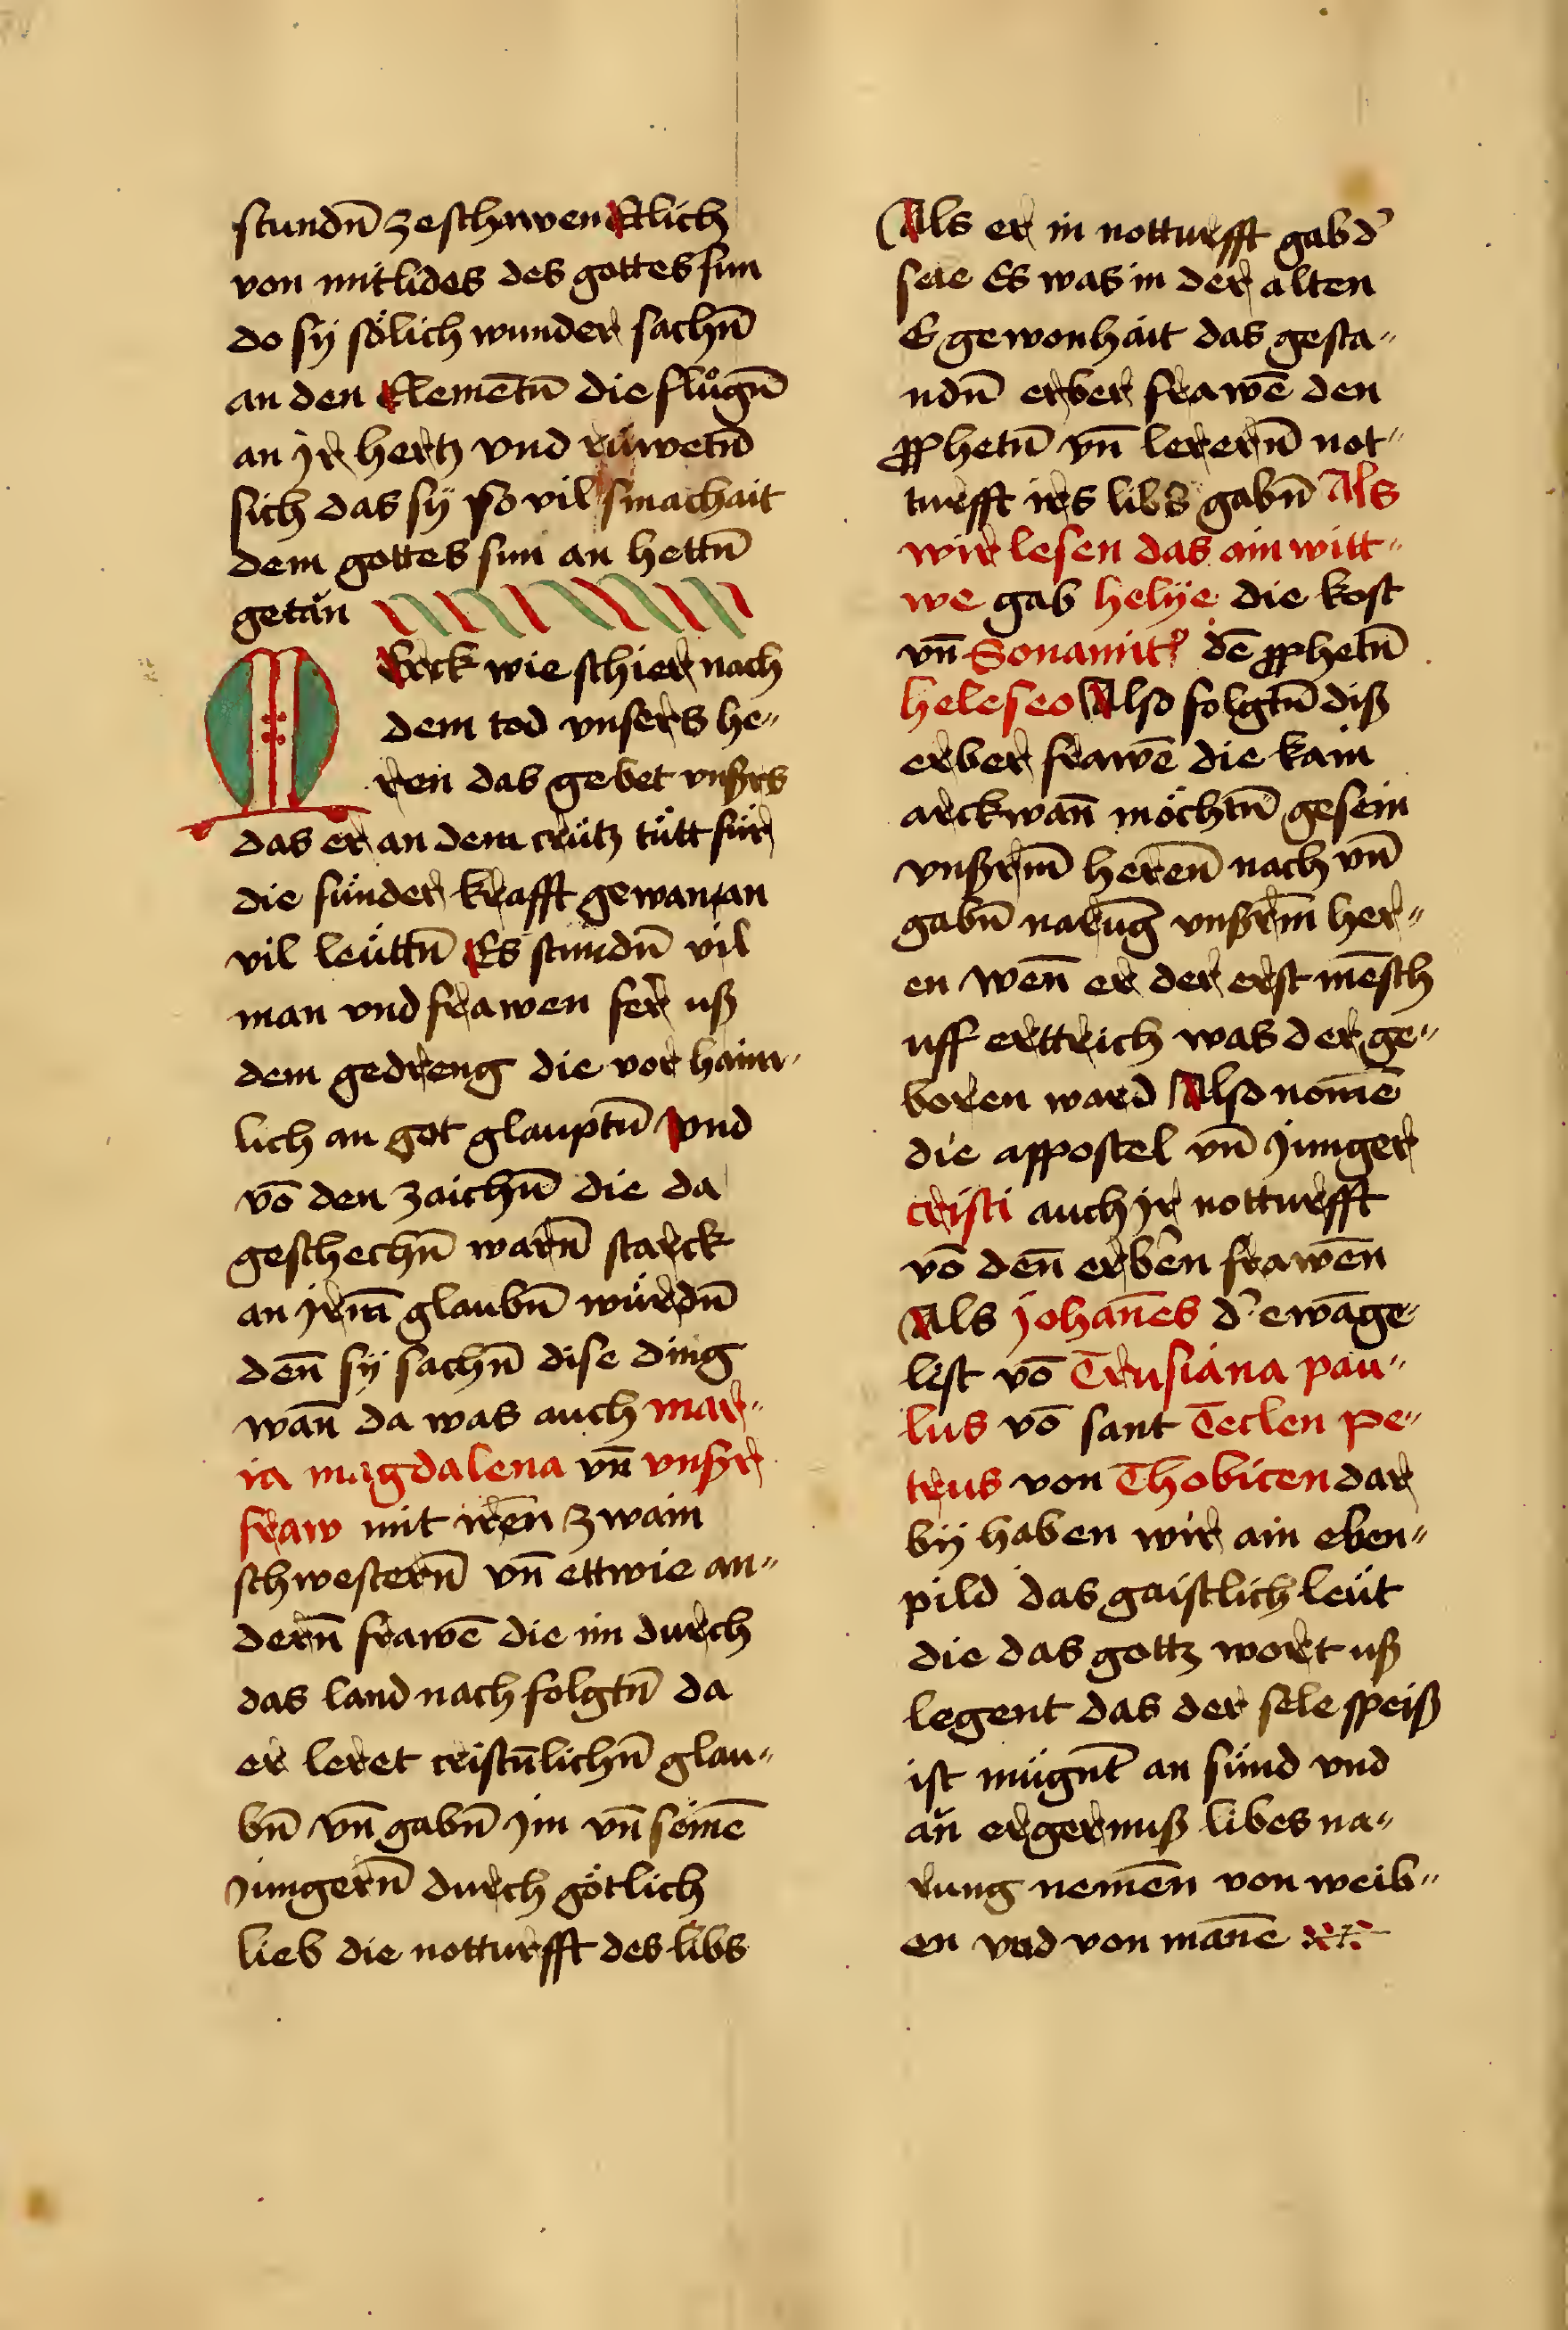 stundn̄ zeschawen Etlich
von mitlides des gottes sun
do sÿ sölich wunder sachn̄
an den Elemētn̄ die slůgn̄
an jr hertz vnd rüwetn̄
sich das sÿ so vil smachait
dem gottes sun an hettn̄
getǎn
Merck wie schier nach
dem tod vnsers he„
ren das gebet vnßrs
das er an dem crütz tütt für
die sünder krafft gewan an
vil leüttn̄ Es stundn̄ vil
man vnd frawen fer uß
dem gedreng die vor haim„
lich an got glauptn̄ vnd
vō den zaichn̄ die da
geschechn̄ warn̄ starck
an jrm̄ glaubn̄ würdn̄
den̄ sÿ sachn̄ dise ding
wan̄ da was auch mar„
ia magdalena vn̄ vnßr
fraw mit iren̄ zwain
schwestern̄ vn̄ ettwie an„
dern̄ frawē die im durch
das land nach folgtn̄ da
er leret cristn̄lichn̄ glau„
bn̄ vn̄ gabn̄ jm vn̄ seinē
jungern̄ durch götlich
lieb die notturfft des libs
Als er in notturfft gab d'
sele Es was in der alten
E gewonhait das gesta„
ndn̄ erber frawē den
pphetn̄ vn̄ lerern̄ not„
turfft irs libs gabn̄ Als
wir lesen das ain witt„
we gab helÿe die kost
vn̄ Sonamit' dē pphetn̄
heleseo Also folgtn̄ diß
erber frawē die kain
arckwan̄ möchtn̄ gesein
vnßrm̄ heren̄ nach vn̄
gabn̄ narūg vnßrm̄ her„
en wen̄ er der erst mēsch
uff erttrich was der ge„
boren ward Also nomē
die appostel vn̄ junger
cristi auch jr notturfft
vō den̄ erbēn frawēn
Als johan̄es d' ewāge„
list vō Trusiana pau„
lus vō sant Teclen pe„
trus von Thobiten dar
bÿ haben wir ain eben„
pild das gaistlich leüt
die das gottz wort uß
legent das der sele speiß
ist mügnt̄ an sünd vnd
ǎn ergernuß libes na„
rung nemēn von weib„
en vnd von man̄e